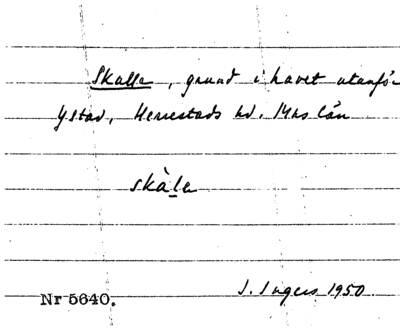 Skalle, grund i havet utanför
Ystad, Herrestads hd. Mhs län
skàle
Nr 5640.
I. Ingers 1950